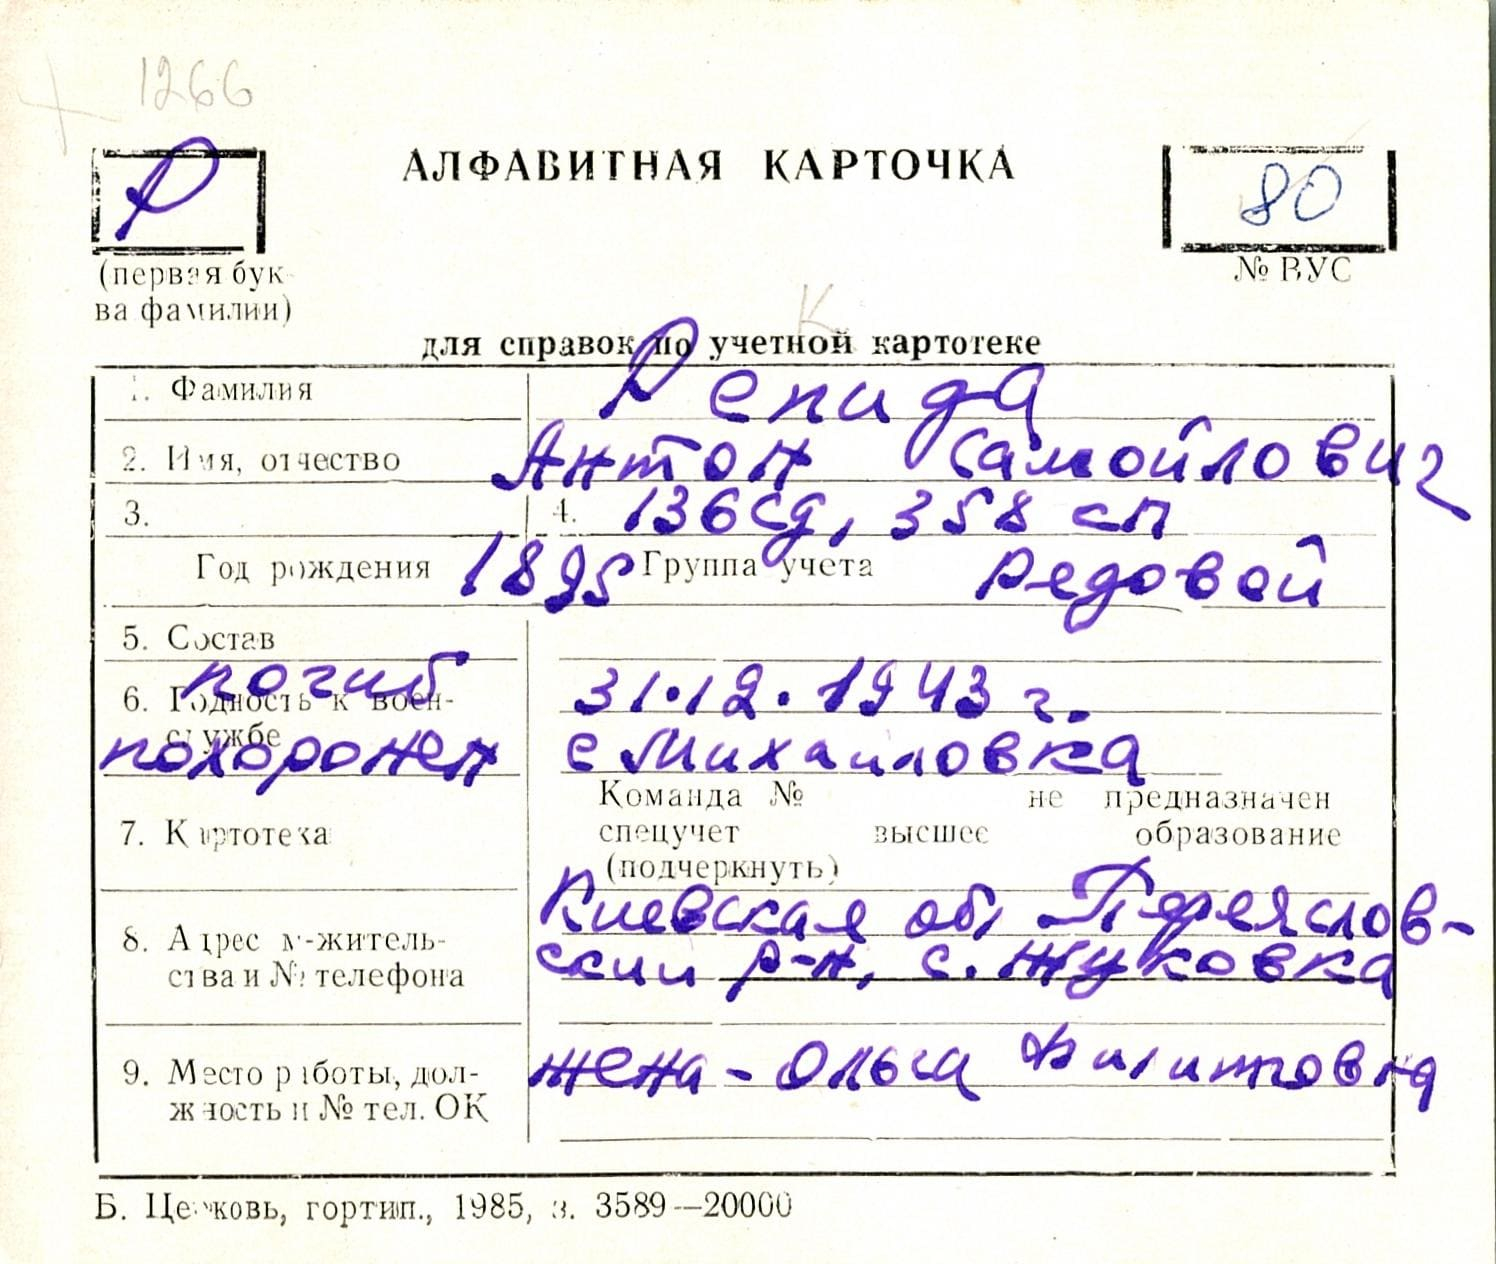 1266
Р
АЛФАВИТНАЯ КАРТОЧКА
80
(первая бук-
ва фамилии)
№ ВУС
К
для справок по учетной картотеке
1. Фамилия Репида
2. Имя, отчество Антон Самойлович
3. 4. 136 сд, 358 сп
Год рождения 1895 Группа учета рядовой
5. Состав
погиб 31.12.1943 г.
6. Годность к воен-
службе
похоронен с Михайловка
Команда № не предназначен
7. Картотека спецучет высшее образование
(подчеркнуть)
Киевская об, Переяслов-
8. Адрес м-житель- ский р-н, с. Жуковка
ства и № телефона
9. Место работы, дол- жена - Ольга Филипповна
жность и № тел. ОК
Б. Церковь, гортип., 1985, з. 3589—20000